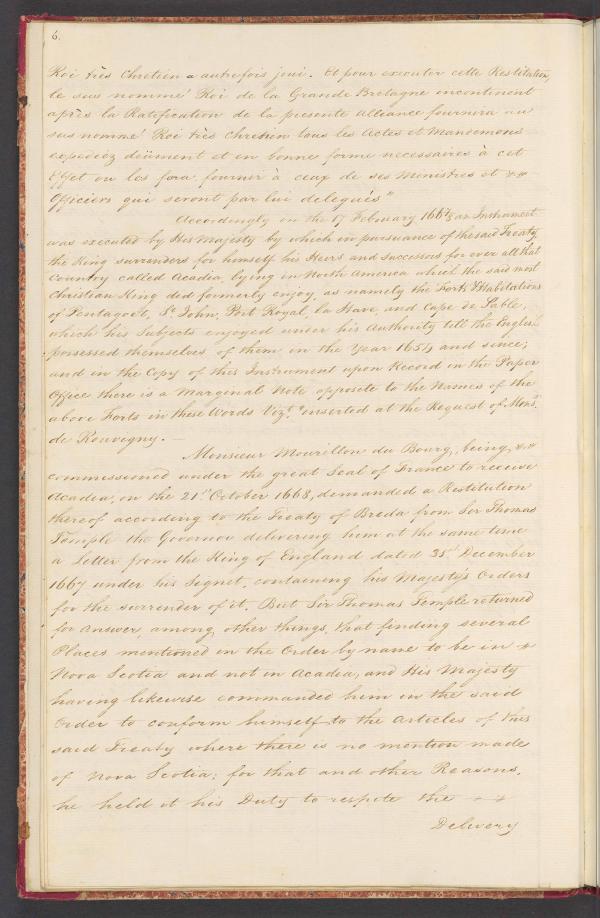 6.
Roi très Chretien a autrefois joui. Et pour executer cette Restitution,
le sus nommé Roi de la Grande Bretagne incontinent
après la Ratification de la presente Alliance fournira au
sus nommé Roi très Chretien tous les Actes et Mandemens
expediez düement et en bonne forme necessaires à cet
Effet ou les fera fournir à ceux de ses Ministres et
Officiers qui seront par lui delegués"
Accordingly on the 17 February 1667/8 an Instrument
was executed by His Majesty by which in pursuance of the said Treaty,
the King surrenders for himself his Heirs and Successors for ever all that
Country called Acadia, lying in North America which the said most
Christian King did formerly enjoy, as namely the Forts & Habitations
of Pentagoët, St. John, Port Royal, la Have, and Cape de Sable,
which his Subjects enjoyed under his Authority till the English
possessed themselves of them in the Year 1654 and since;
and in the Copy of this Instrument upon Record in the Paper
Office there is a Marginal Note opposite to the Names of the
above Forts in these Words Vizt. "inserted at the Request of Monsr.
de Rouvigny. —
Monsieur Mourillon du Bourg, being
commissioned under the great Seal of France to receive
Acadia, on the 21st October 1668, demanded a Restitution
thereof according to the Treaty of Breda from Sir Thomas
Temple the Governor delivering him at the same time
a Letter from the King of England dated 31st December
1667 under his Signet, containing his Majesty's Orders
for the surrender of it. But Sir Thomas Temple returned
for Answer, among other things, that finding several
Places mentioned in the Order by name to be in
Nova Scotia and not in Acadia, and His Majesty
having likewise commanded him in the said
Order to conform himself to the Articles of the
said Treaty where there is no mention made
of Nova Scotia; for that and other Reasons,
he held it his Duty to respite the
Delivery